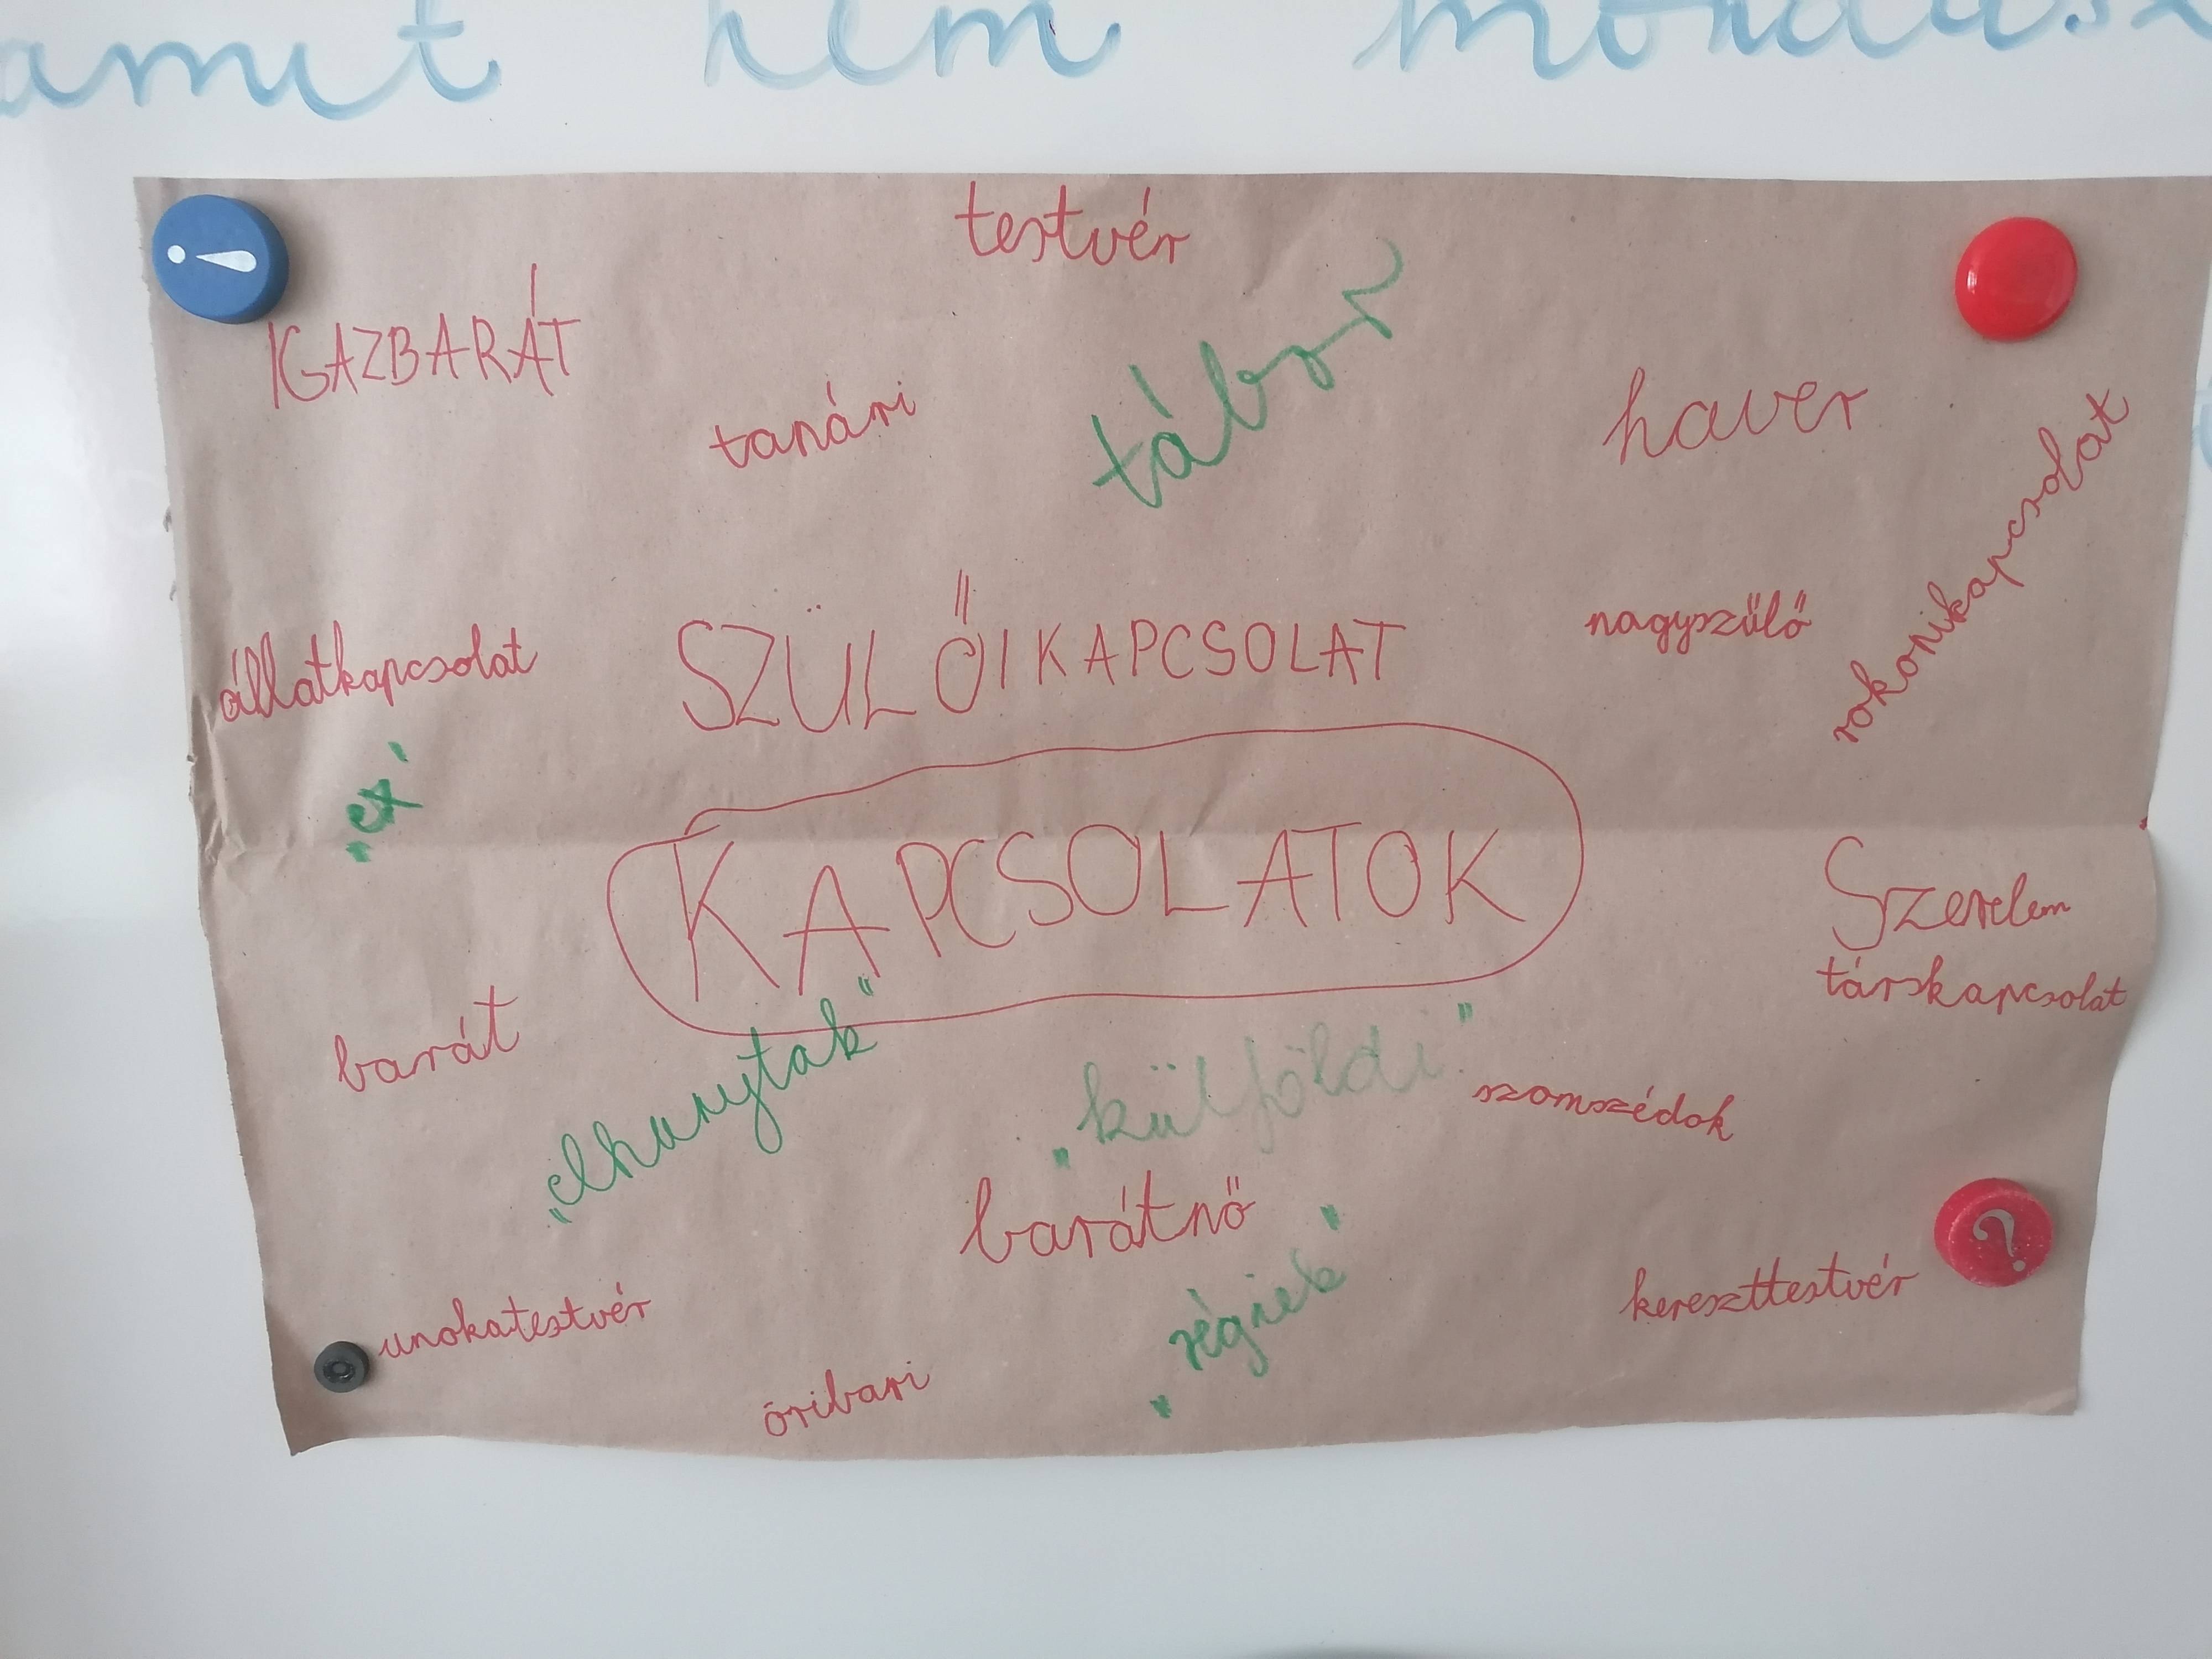 amit nem mondasz
testvér
IGAZBARÁT
tanári
haver
rokonikapcsolat
állatkapcsolat
SZÜLŐIKAPCSOLAT
nagyszülő
„ex"
KAPCSOLATOK
Szerelem
társkapcsolat
barát
„elhunytak"
„külföldi"
szomszédok
barátnő
„régiek"
kereszttestvér
unokatestvér
óribari